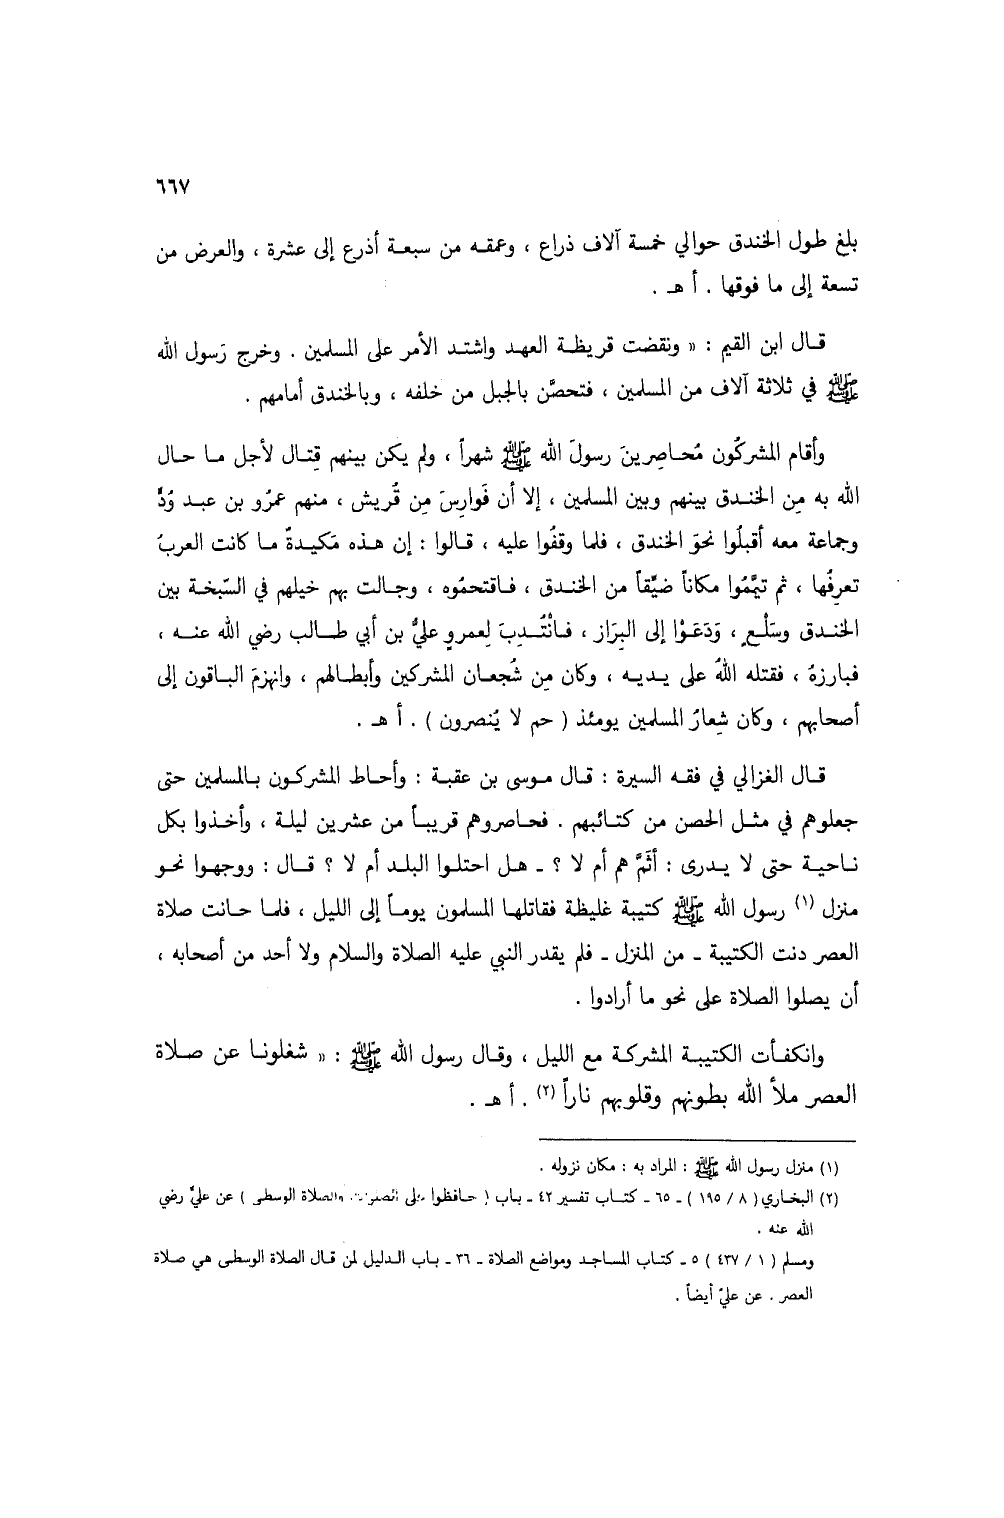 ٦٦٧
بلغ طول الخندق حوالي خمسة آلاف ذراع ، وعمقه من سبعة أذرع إلى عشرة ، والعرض من
تسعة إلى ما فوقها . أ هـ .
قال ابن القيم : « ونقضت قريظة العهد واشتد الأمر على المسلمين . وخرج رَسول الله
ﷺ في ثلاثة آلاف من المسلمين ، فتحصَّن بالجبل من خلفه ، وبالخندق أمامهم .
وأقام المشركُون مُحاصِرينَ رسولَ الله ﷺ شهراً ، ولم يكن بينهم قِتال لأجل ما حال
الله به مِن الخندق بينهم وبين المسلمين ، إلا أن فَوارِسَ مِن قُريش ، منهم عمرُو بن عبد وُدٍّ
وجماعة معه أقبلُوا نحوَ الخندق ، فلما وقفُوا عليه ، قالوا : إن هذه مَكيدةٌ ما كانت العربُ
تعرِفُها ، ثم تيمَّمُوا مكاناً ضيِّقاً من الخندق ، فاقتحمُوه ، وجالت بهم خيلهم في السّبخة بين
الخندق وسَلْعٍ ، وَدَعَوْا إلى البِرَاز ، فانْتُدِبَ لِعمرو عليُّ بن أبي طالب رضي الله عنه ،
فبارزهُ ، فقتله اللهُ على يديه ، وكان مِن شُجعان المشركين وأبطالهم ، وانهزمَ الباقون إلى
أصحابهم ، وكان شِعارُ المسلمين يومئذ ( حم لا يُنصرون ) . أ هـ .
قال الغزالي في فقه السيرة : قال موسى بن عقبة : وأحاط المشركون بالمسلمين حتى
جعلوهم في مثل الحصن من كتائبهم . فحاصروهم قريباً من عشرين ليلة ، وأخذوا بكل
ناحية حتى لا يدرى : أثَمَّ هم أم لا ؟ ـ هل احتلوا البلد أم لا ؟ قال : ووجهوا نحو
منزل (١) رسول الله ﷺ كتيبة غليظة فقاتلها المسلمون يوماً إلى الليل ، فلما حانت صلاة
العصر دنت الكتيبة ـ من المنزل ـ فلم يقدر النبي عليه الصلاة والسلام ولا أحد من أصحابه ،
أن يصلوا الصلاة على نحو ما أرادوا .
وانكفأت الكتيبة المشركة مع الليل ، وقال رسول الله ﷺ : « شغلونا عن صلاة
العصر ملأ الله بطونهم وقلوبهم ناراً (٢) . أ هـ .
(١) منزل رسول الله ﷺ : المراد به : مكان نزوله .
(٢) البخاري ( ٨ / ١٩٥ ) ـ ٦٥ ـ كتاب تفسير ٤٢ ـ باب ( حافظوا على الصلوات والصلاة الوسطى ) عن عليٍّ رضي
الله عنه .
ومسلم ( ١ / ٤٣٧ ) ٥ ـ كتاب المساجد ومواضع الصلاة ـ ٣٦ ـ باب الدليل لمن قال الصلاة الوسطى هي صلاة
العصر . عن عليّ أيضاً .